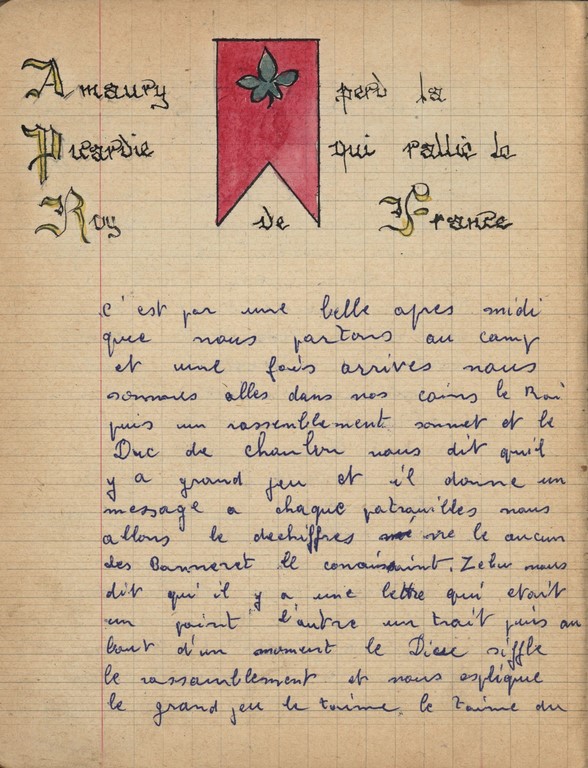 Amaury perd la
Picardie qui rallie le
Roy de France
C'est par une belle apres midi
que nous partons au camp
et une fois arrives nous
sommes alles dans nos coins le Roi
puis un rassemblement sonnet et le
Duc de nous dit qu'il
y a grand jeu et il donne un
message a chaque patrouilles nous
allons le dechiffres le aucun
des Banneret le . Zebu nous
dit qu'il y a une lettre qui etait
un point l'autre un trait puis au
bout d'un moment le siffle
le rassemblement et nous esplique
le grand jeu le taime le taime du